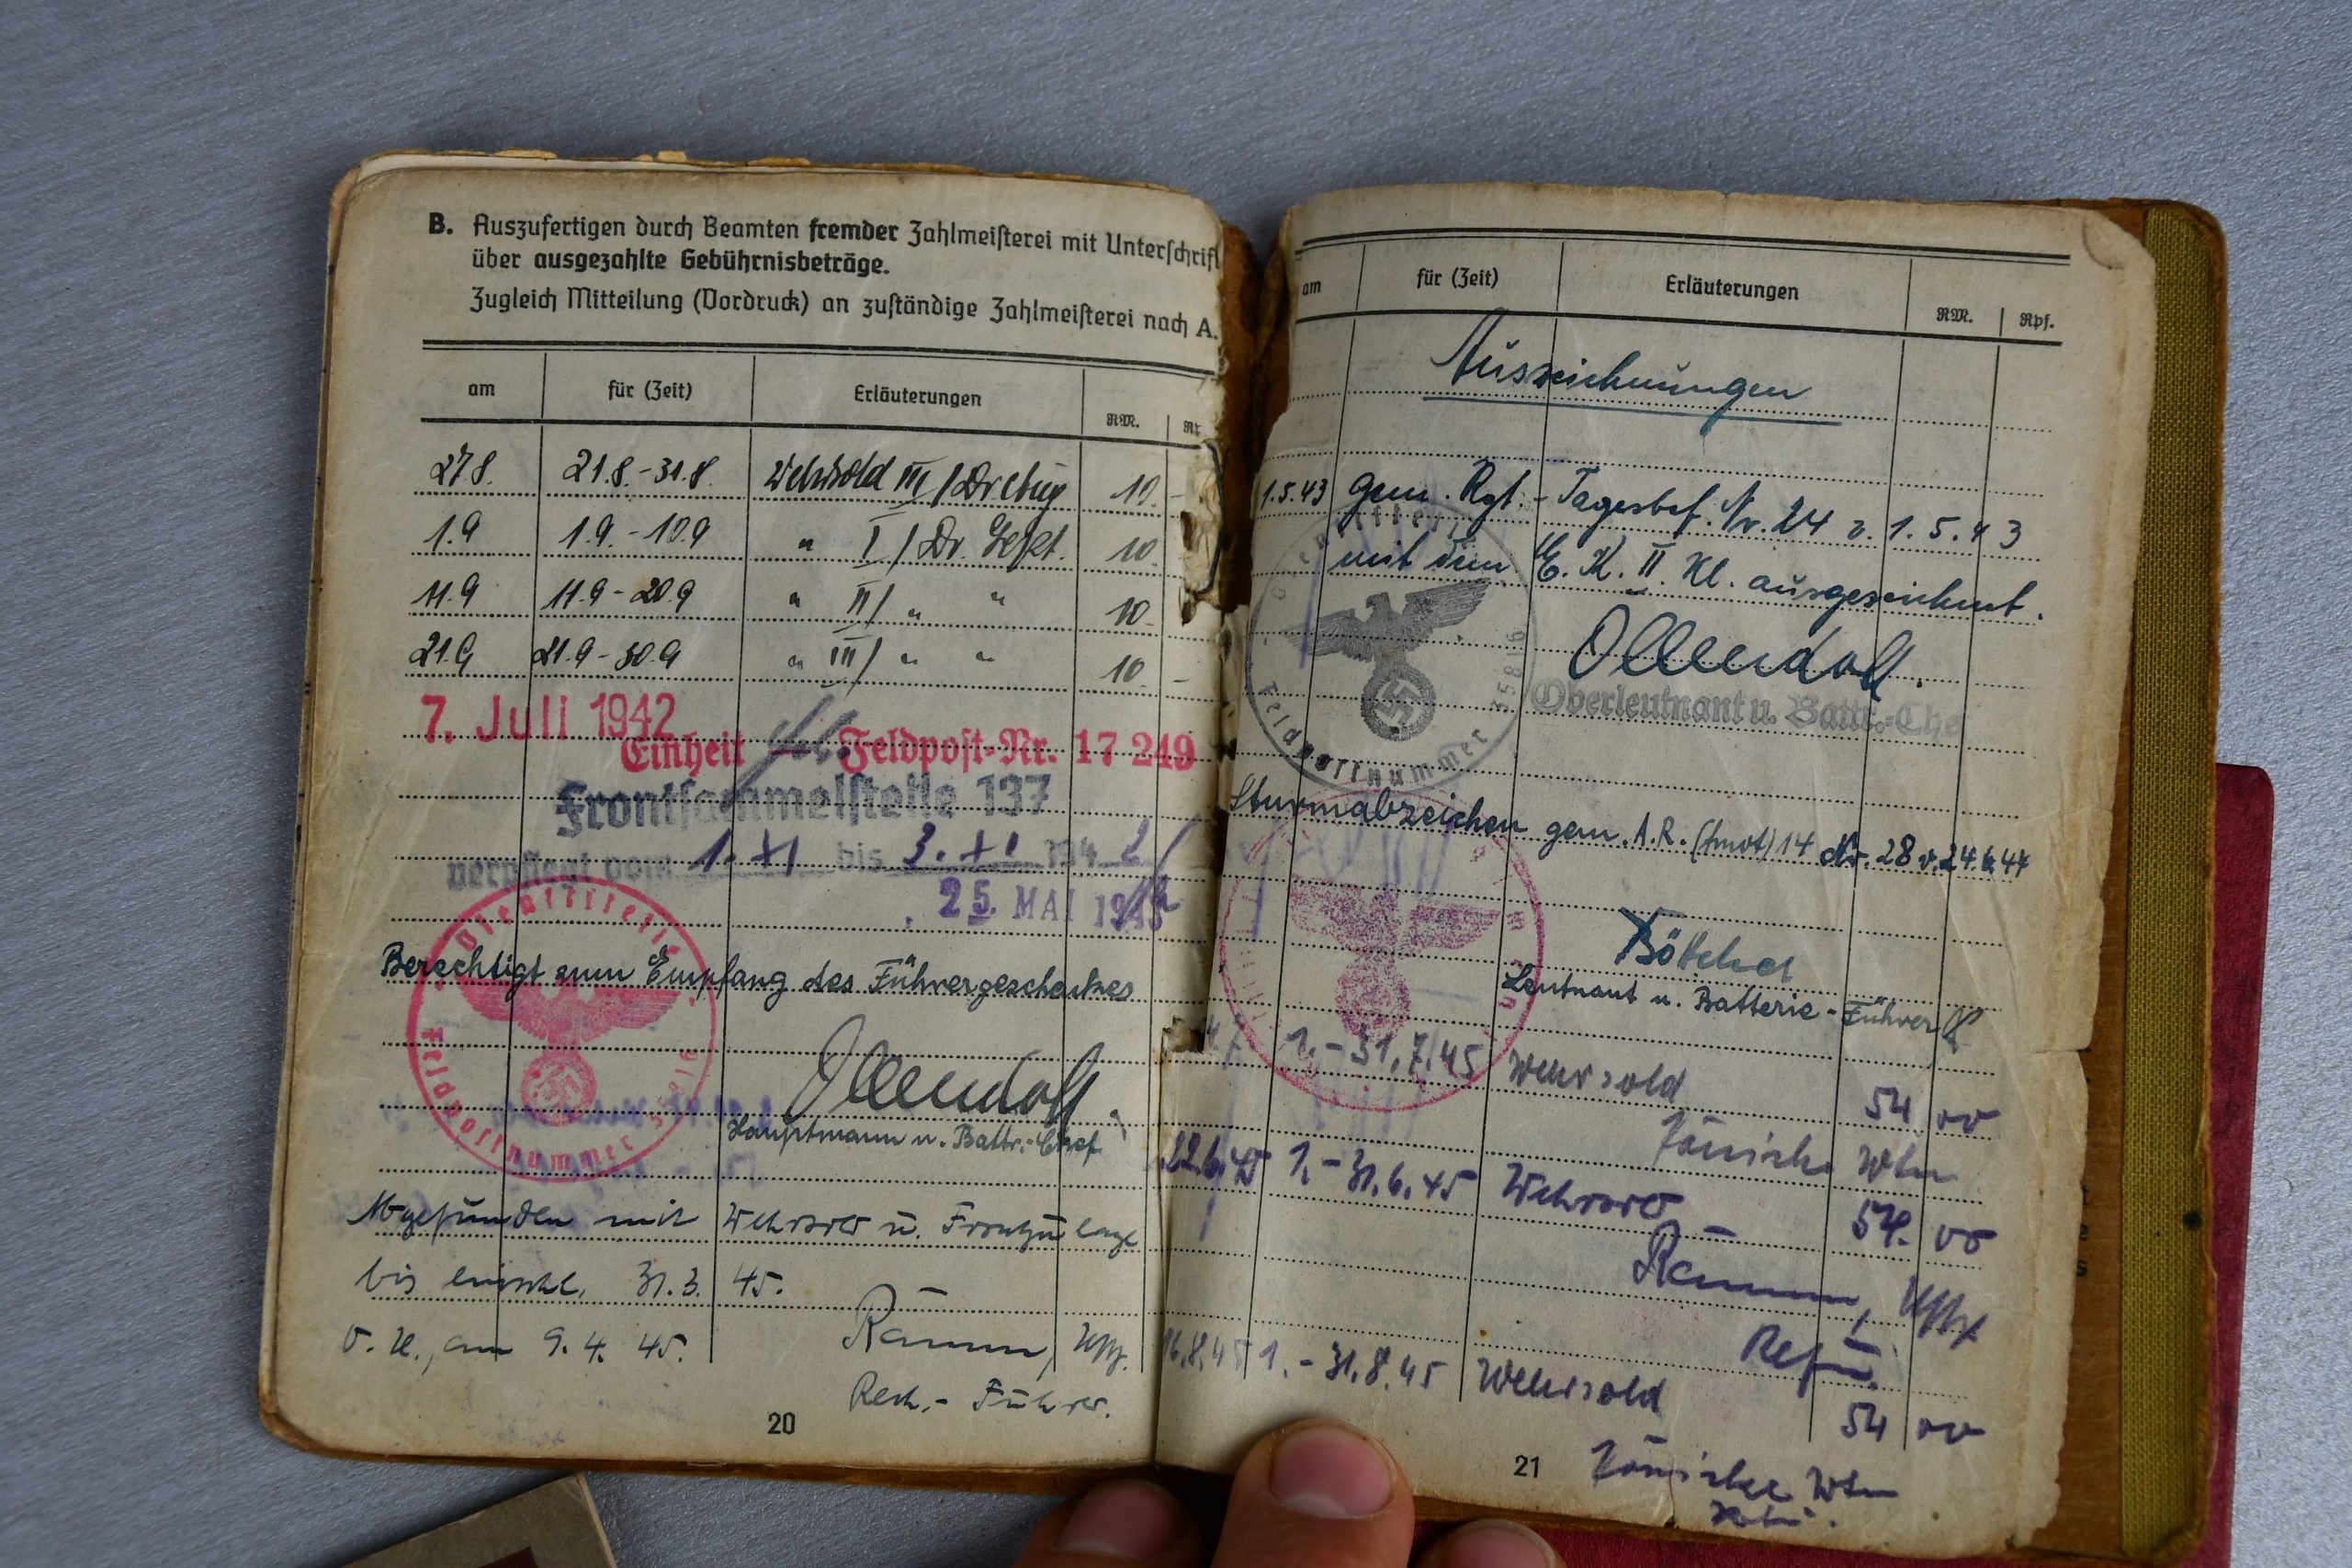 B. Auszufertigen durch Beamten fremder Zahlmeisterei mit Unterschrift
über ausgezahlte Gebührnisbeträge.
Zugleich Mitteilung (Vordruck) an zuständige Zahlmeisterei nach A.
am für (Zeit) Erläuterungen RM.
27.8. 21.8.-31.8. Wehrsold III/ 10.-
1.9 1.9.-10.9 " I/ 10.
11.9 11.9-20.9 " II/ " " 10.-
21.9 21.9-30.9 " III/ " " 10.-
7. Juli 1942
Einheit Feldpost-Nr. 17 249
Frontsammelstelle 137
verpflegt vom 1. XI bis 3. XI 1942
25. MAI 1943
Dienststelle
Berechtigt zum Empfang des Führergeschenkes
Feldpostnummer
Ollendorf.
Hauptmann u. Battr.-Chef
Abgefunden mit Wehrsold u. Frontzulage
bis einschl. 31.3.45.
O.U., am 9.4.45. Ramm, Uffz.
Rech.-Führer.
20
am für (Zeit) Erläuterungen RM. Rpf.
Auszeichnungen
1.5.43 gem. Rgt.-Tagesbef. Nr. 24 v. 1.5.43
mit dem E.K. II. Kl. ausgezeichnet.
Ollendorf.
Oberleutnant u. Battr.-Chef
Feldpostnummer 35816
Sturmabzeichen gem. A.R. (mot) 14 Nr. 28 v. 24.6.44
Böttcher
Leutnant u. Batterie-Führer
4.7 1.-31.7.45 Wehrsold 54 00
Wtm
22.6.45 1.-31.6.45 Wehrsold 54. 00
Ramm, Uffz
Refü.
16.8.45 1.-31.8.45 Wehrsold 54 00
Wtm
21